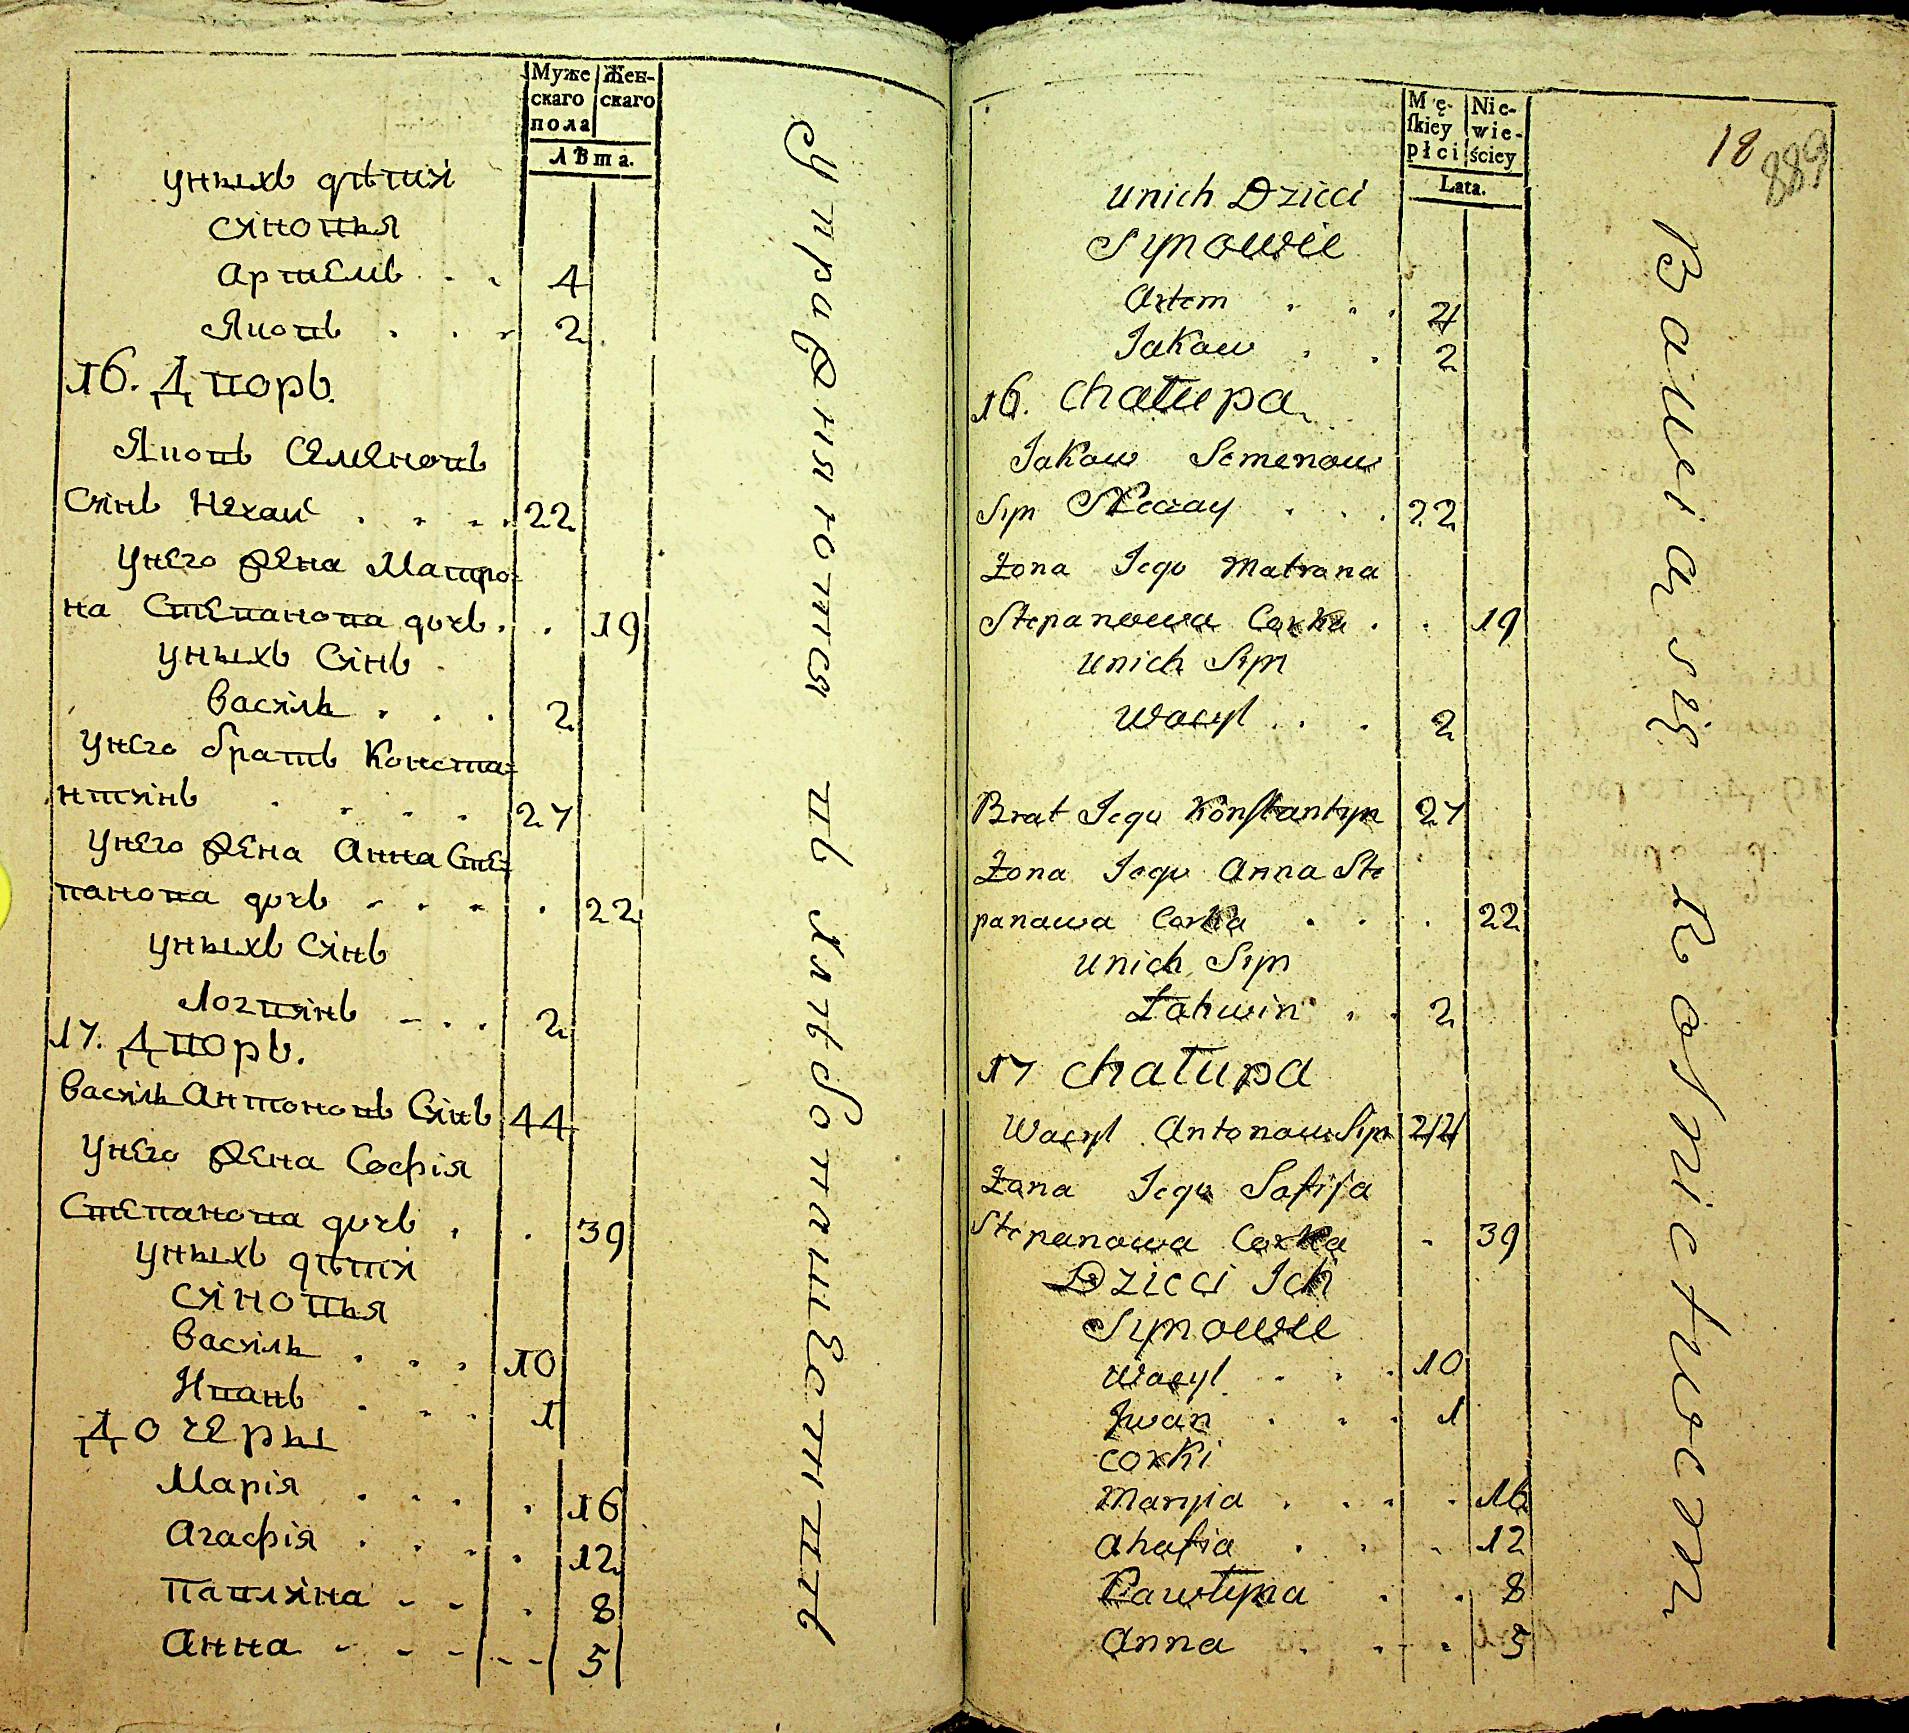 Муже
скаго
пола
Жен-
скаго
Лѣта.
унихъ дѣти
синовья
Артемъ . . 4
Яковъ . . . 2
16. Дворъ.
Яковъ Семеновъ
Синъ Нечай . . . . 22
унего жена Матро-
на Степанова дочъ . . 19
унихъ Синъ
Василь . . . 2
унего братъ Конста-
нтинъ . . . . 27
унего жена Анна Сте-
панова дочъ . . . . 22
унихъ Синъ
Логвинъ . . . 2
17. Дворъ.
Василь Антоновъ Синъ 44
унего жена Софія
Степанова дочъ . . 39
унихъ дѣти
синовья
Василь . . . 10
Иванъ . . . 1
Дочеры
Марія . . . . 16
Агафія . . . . 12
Павлина . . . 8
Анна - - - - - 5
упражняются въ хлѣбопашествѣ
Mę-
ſkiey
płci
Nie-
wie-
ściey
Lata.
18
889
unich Dzieci
Synowie
Artem . . . 4
Jakow . . 2
16. Chałupa.
Jakow Semenow
Syn Neczay . . . 22
Żona Jego Matrona
Stepanowa Corka . . 19
unich Syn
Wasyl . . . 2
Brat Jego Konſtantyn 27
Żona Jego Anna Ste
panawa Corka . . . 22
unich Syn
Łahwin . . 2
17 Chałupa
Wasyl Antonow Syn 44
Żona Jego Sofija
Stepanowa Corka . 39
Dzieci Ich
Synowie
Wasyl . . . 10
Jwan . . . 1
corki
Maryia . . . . 16
Ahafia . . . 12
Pawłyna . . 8
Anna . . . 5
Bawią się Rolnictwem